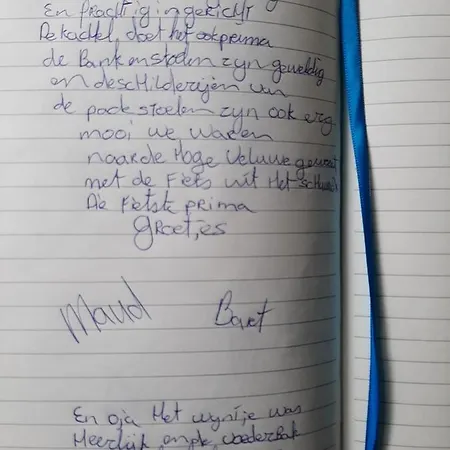 En Prachtig ingericht
De kachel doet het ook prima
de Bank en stoelen zyn geweldig
en de schilderijen en
de pook stoelen zyn ook erg
mooi we waren
naar de Hoge Veluwe geweest
met de Fiets uit Het schuurtje
De Fietste prima
Groetjes
Maud Bart
En oja Het wyntje was
Heerlijk en de voederbak